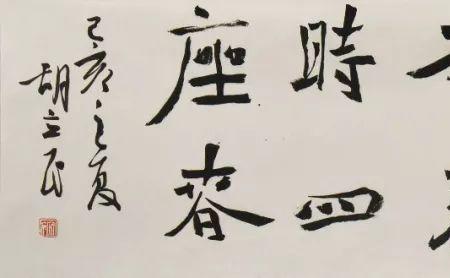 時四
座春
己亥之夏
胡立民